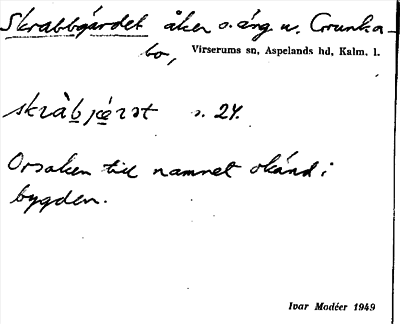 Skrabbgärdet åker o. äng u. Crunka-
bo, Virserums sn, Aspelands hd, Kalm. l.
s. 24.
Orsaken till namnet okänd i
bygden.
Ivar Modéer 1949